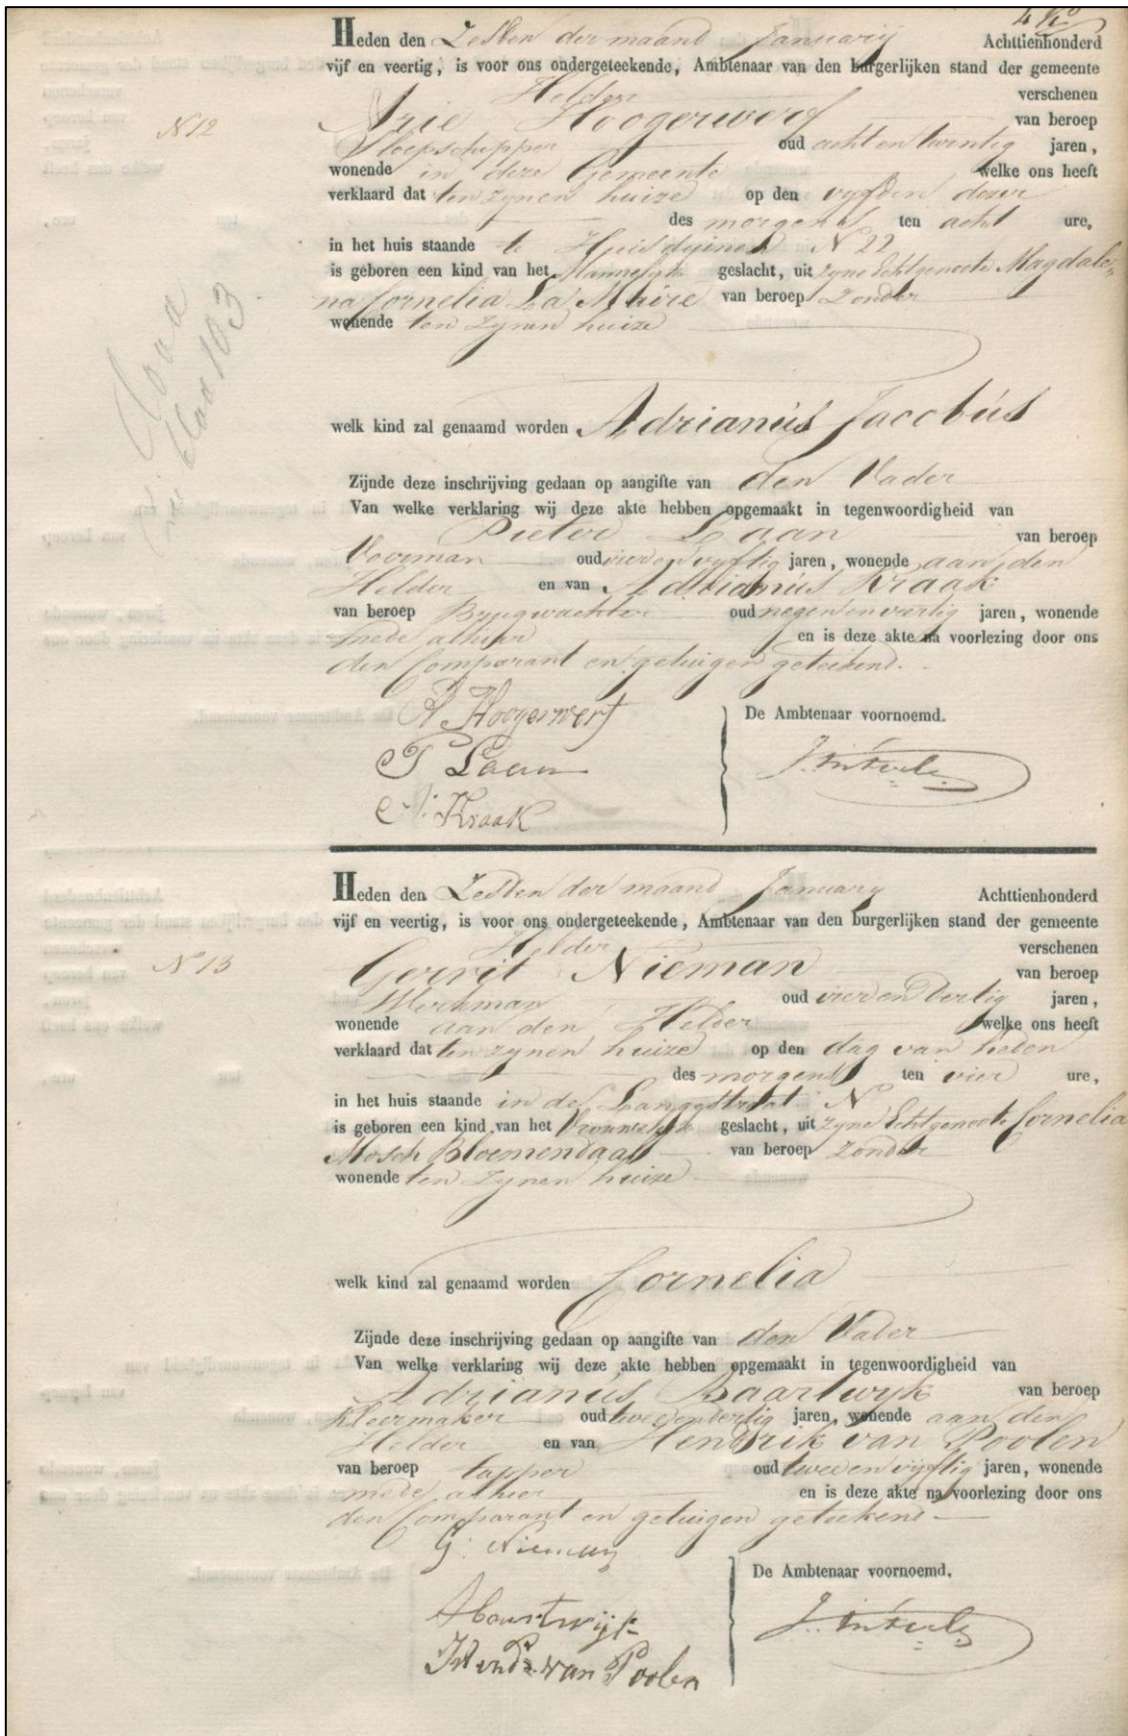 Heden den Zesden der maand January Achttienhonderd
vijf en veertig, is voor ons ondergeteekende, Ambtenaar van den burgerlijken stand der gemeente
Helder verschenen
N 12
Arie Hoogerwerf van beroep
Sloepschipper oud acht en twintig jaren,
wonende in deze Gemeente welke ons heeft
verklaard dat ten zynen huize op den vyfden dezer
des morgens ten acht ure,
in het huis staande te Huisduinen N 22
is geboren een kind van het Mannelyk geslacht, uit zyne Echtgenoote Magdale-
na Cornelia La Maire van beroep zonder
wonende ten zynen huize
welk kind zal genaamd worden Adrianus Jacobus
Zijnde deze inschrijving gedaan op aangifte van den Vader
Van welke verklaring wij deze akte hebben opgemaakt in tegenwoordigheid van
Pieter Laan van beroep
Voerman oud vier en vyftig jaren, wonende aan den
Helder en van Adrianus Kraak
van beroep Brugwachter oud negen en veertig jaren, wonende
mede alhier en is deze akte na voorlezing door ons
den Comparant en getuigen geteekend.
A Hoogerwerf De Ambtenaar voornoemd.
P Laan
A. Kraak
Heden den Zesden der maand January Achttienhonderd
vijf en veertig, is voor ons ondergeteekende, Ambtenaar van den burgerlijken stand der gemeente
Helder verschenen
N 13
Gerrit Nieman van beroep
Werkman oud vier en dertig jaren,
wonende aan den Helder welke ons heeft
verklaard dat ten zynen huize op den dag van heden
des morgens ten vier ure,
in het huis staande in de Langestraat N
is geboren een kind van het Vrouwelyk geslacht, uit zyne Echtgenoote Cornelia
Mosch Bloemendaal van beroep zonder
wonende ten zynen huize
welk kind zal genaamd worden Cornelia
Zijnde deze inschrijving gedaan op aangifte van den Vader
Van welke verklaring wij deze akte hebben opgemaakt in tegenwoordigheid van
Adrianus Baartwyk van beroep
Kleermaker oud twee en dertig jaren, wonende aan den
Helder en van Hendrik van Poolen
van beroep tapper oud twee en vyftig jaren, wonende
mede alhier en is deze akte na voorlezing door ons
den Comparant en getuigen geteekend
G. Nieman De Ambtenaar voornoemd.
A Baartwijk
Hend. van Poolen